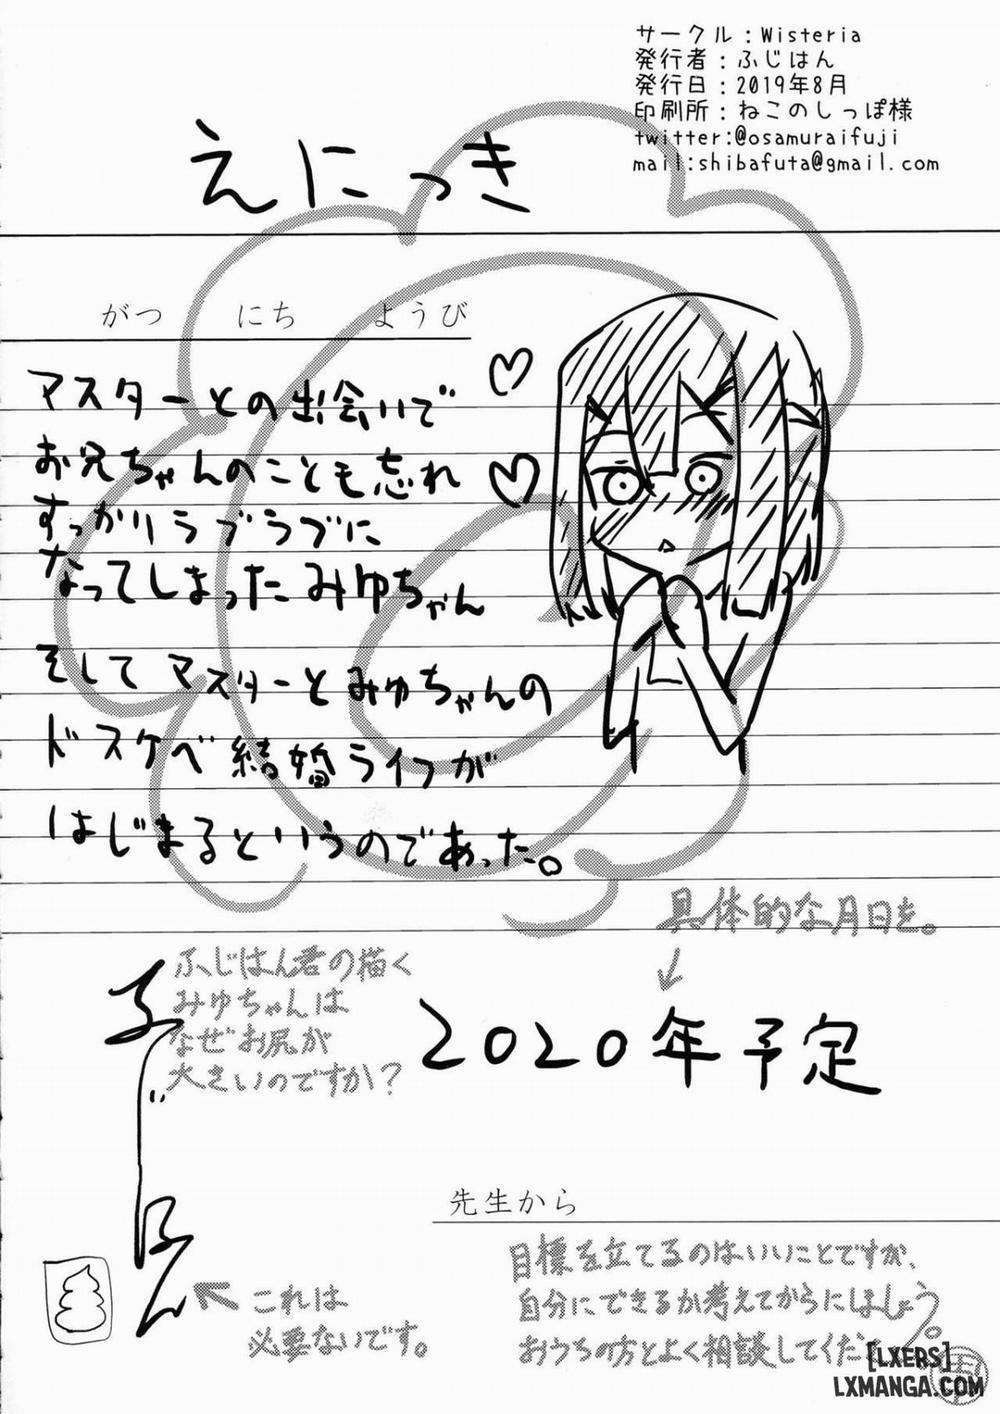 サークル：Wisteria
発行者：ふじはん
発行日：2019年8月
印刷所：ねこのしっぽ様
twitter:@osamuraifuji
mail:shibafuta@gmail.com
えにっき
がつ にち ようび
マスターとの出会いで
お兄ちゃんのことも忘れ
すっかりラブラブに
なってしまったみゆちゃん
そしてマスターとみゆちゃんの
ドスケベ結婚ライフが
はじまるというのであった。
具体的な月日を。
2020年予定
ふじはん君の描く
みゆちゃんは
なぜお尻が
大きいのですか?
ふじはん
これは
必要ないです。
先生から
目標を立てるのはいいことですが、
自分にできるか考えてからにしましょう。
おうちの方とよく相談してくだ
[LXERS]
LXMANGA.COM